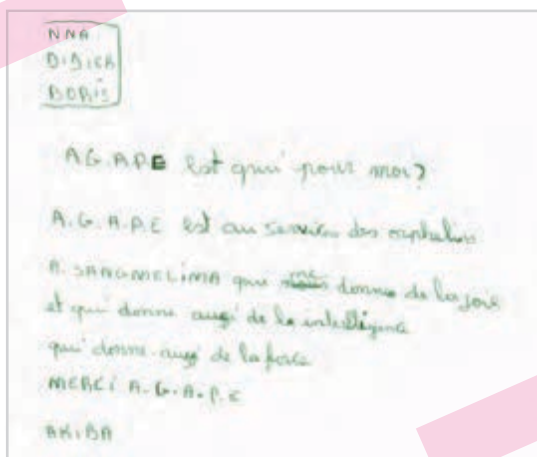 NNA
DIDIER
BORIS
AG.APE est qui pour moi?
A.G.A.P.E est au service des orphelins
A. SANGMELIMA qui me donne de la joie
et qui donne augi de la intelligence
qui donne augi de la force
MERCi A.G.A.P.E
AKIBA